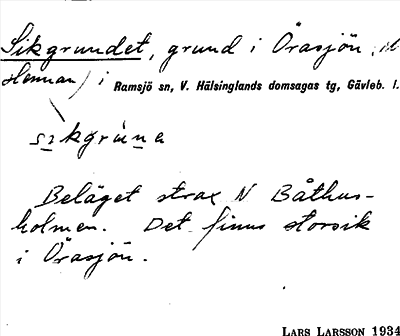 Sikgrundet, grund i Örasjön, (N
Hennan) i Ramsjö sn, V. Hälsinglands domsagas tg, Gävleb. l.
Beläget strax N Båthus-
holmen. Det finns storsik
i Örasjön.
LARS LARSSON 1934